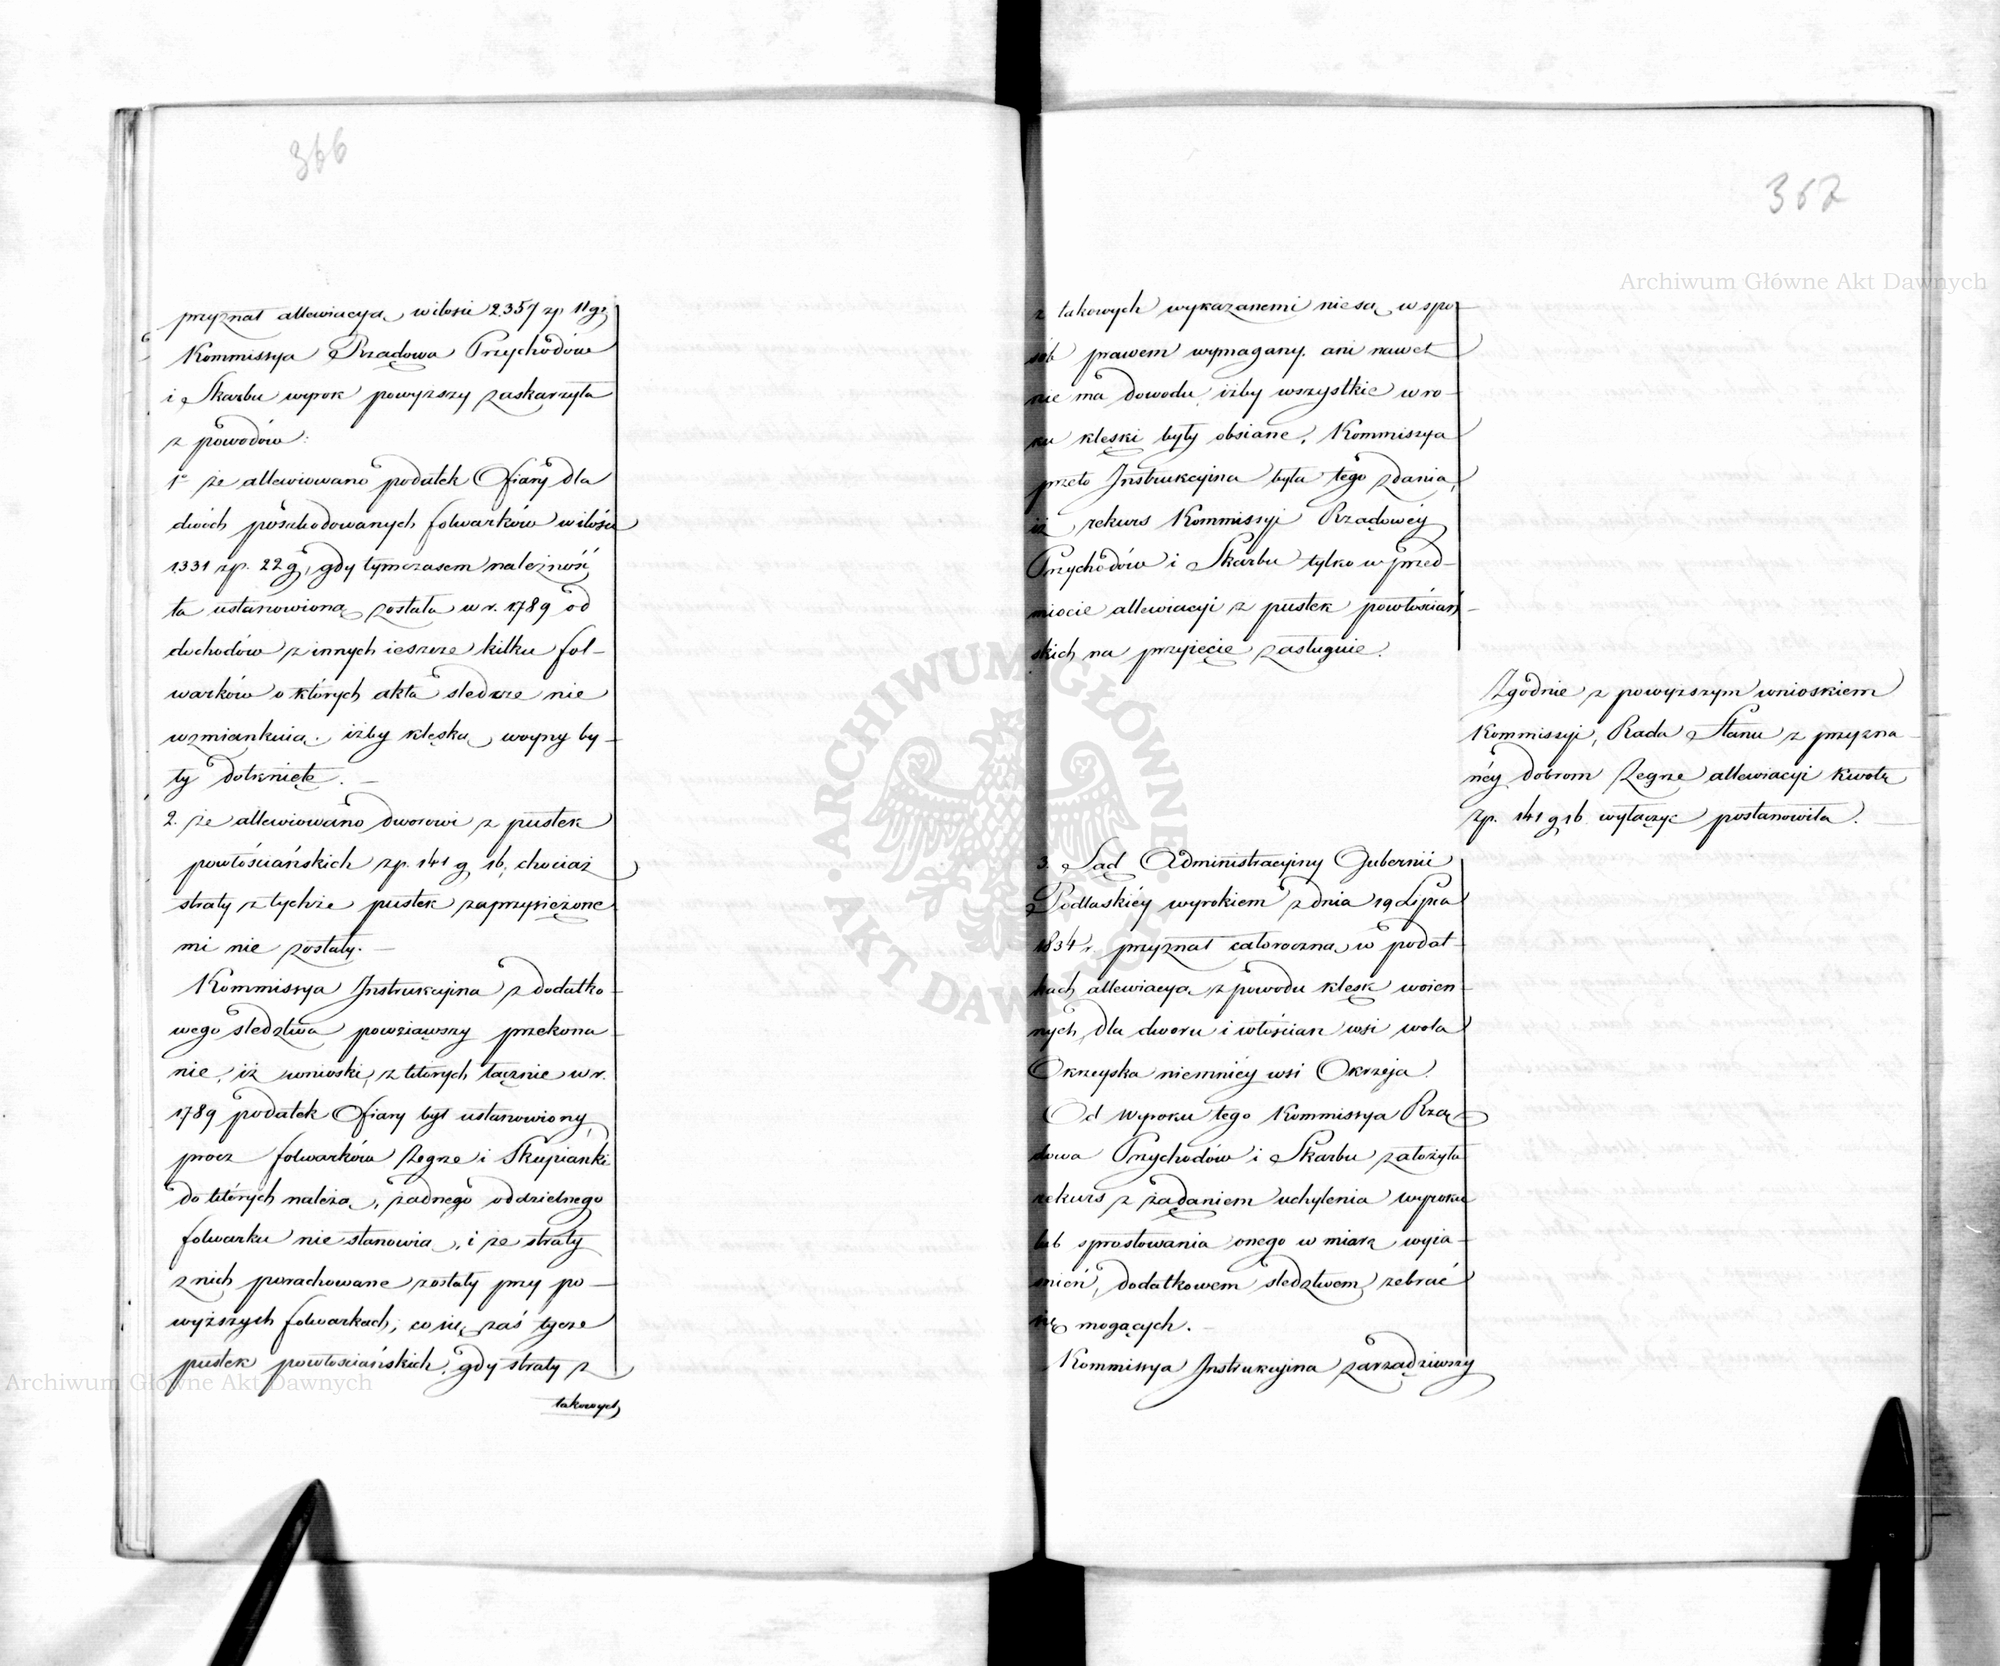 366
przyznał allewiacyą w ilości 2357 zp 11 gr.
Kommissya Rządowa Przychodów
i Skarbu wyrok powyższy zaskarżyła
z powodów:
1° że allewiowano podatek Ofiary dla
dwóch poszkodowanych folwarków w ilości
1331 zp. 22 g, gdy tymczasem należność
ta ustanowioną została w r. 1789 od
dochodów z innych ieszcze kilku fol-
warków o których akta śledcze nie
wzmiankuią, iżby klęską woyny by-
ły dotknięte. —
2. że allewiowano dworowi z pustek
powłościańskich zp. 141 g 16, chociaż
straty z tychże pustek zaprzysiężone
mi nie zostały. —
Kommissya Instrukcyjna z dodatko-
wego śledztwa powziąwszy przekona-
nie, iż wnioski, z których łącznie w r.
1789 podatek Ofiary był ustanowiony,
procz folwarków Zegrze i Skupianki
do których należą, żadnego oddzielnego
folwarku nie stanowią, i że straty
z nich porachowane zostały przy po-
wyższych folwarkach, co się zaś tycze
pustek powłościańskich, gdy straty z
takowych
367
z takowych wykazanemi nie są w spo-
sób prawem wymagany, ani nawet
nie ma dowodu iżby wszystkie w ro-
ku klęski były obsiane, Kommissya
przeto Instrukcyjna była tego zdania,
iż rekurs Kommissyi Rządowéy
Przychodów i Skarbu tylko w przed-
miocie allewiacyi z pustek powłościań-
skich na przyięcie zasługuie.
Zgodnie z powyższym wnioskiem
Kommissyi, Rada Stanu z przyzna-
néy dobrom Zegrze allewiacyi kwotę
zp. 141 g 16 wyłączyć postanowiła. —
3. Sąd Administracyiny Gubernii
Podlaskiéy wyrokiem z dnia 19 Lipca
1834 r. przyznał całoroczną w podat-
kach allewiacyą z powodu klęsk woien-
nych, dla dworu i włościan wsi Wola
Okrzeyska niemniéy wsi Okrzeja.
Od wyroku tego Kommissya Rzą-
dowa Przychodów i Skarbu założyła
rekurs z żądaniem uchylenia wyroku
lub sprostowania onego w miarę wyia-
śnień, dodatkowem śledztwem zebrać
się mogących. —
Kommissya Instrukcyjna zarządziwszy
Archiwum Główne Akt Dawnych
Archiwum Główne Akt Dawnych
ARCHIWUM GŁÓWNE
AKT DAWNYCH